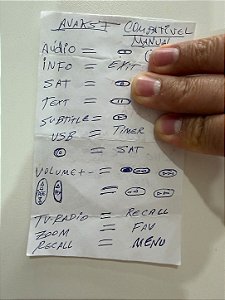 AVAKS I COMPATÍVEL
MANUAL
AUDIO =
INFO = EXIT
SAT =
TEXT =
SUBTITLE =
USB = TIMER
= SAT
VOLUME + - =
=
TV-RADIO = RECALL
ZOOM = FAV
RECALL = MENU